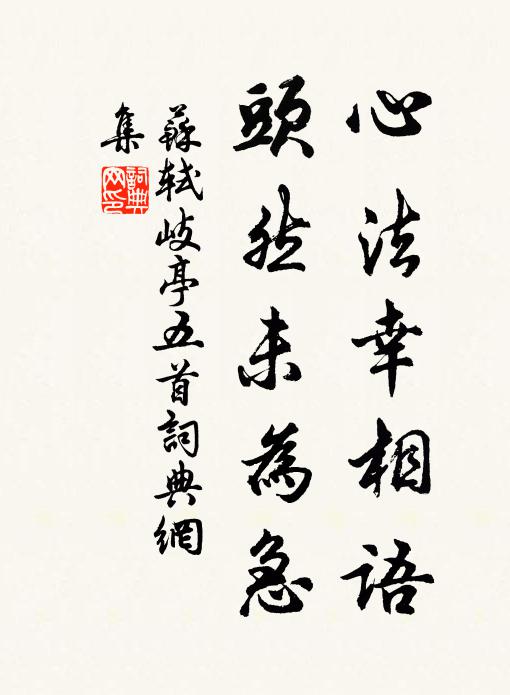 心法幸相語
頭然未為急
蘇軾岐亭五首詞典網
集
詞典网印